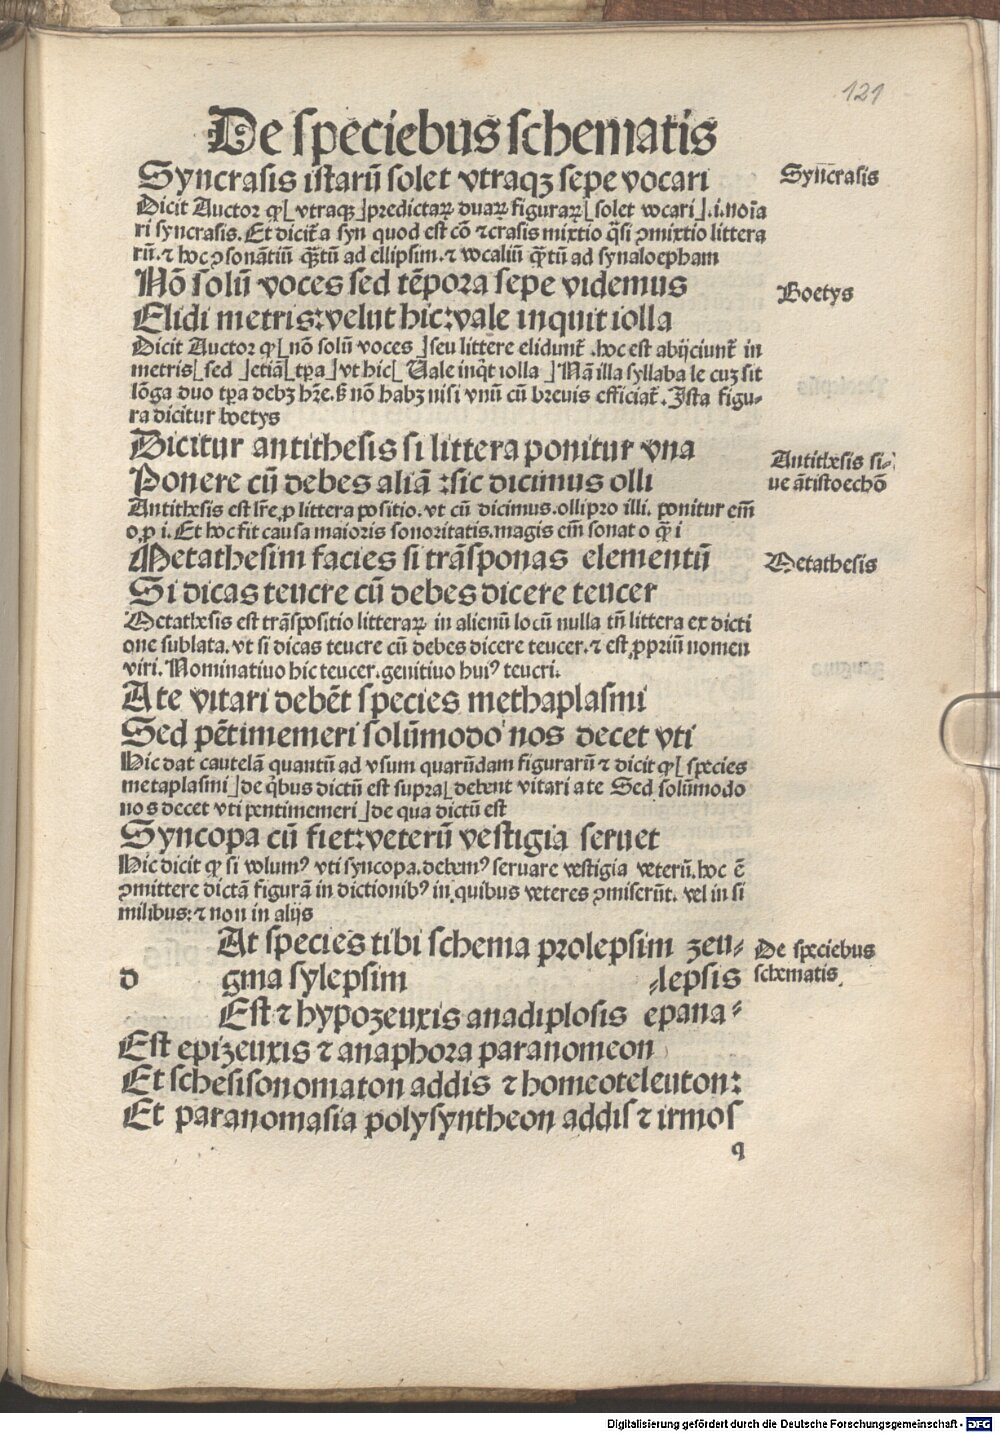 121
De speciebus schematis
Syncrasis istarũ solet vtraqꝫ sepe vocari
Syncrasis
Dicit Auctor ꝙ[ vtraqꝫ ]predictaꝝ duaꝝ figuraꝝ[ solet vocari ].i.noĩa
ri syncrasis. Et dicit᷑ a syn quod est cõ ⁊ crasis mixtio q̃si ꝯmixtio littera
rũ. ⁊ hoc ꝯsonãtiũ quãtũ ad ellipsim. ⁊ vocaliũ quãtũ ad synaloepham
Nõ solũ voces sed tẽpora sepe videmus
Boetys
Elidi metris: velut hic: vale inquit iolla
Dicit Auctor ꝙ[ nõ solũ voces ]seu littere elidunt᷑ .hoc est abijciunt᷑ in
metris[ sed ]etiã[ tꝑa ]vt hic[ Uale inq̇t iolla ] Nã illa syllaba le cuꝫ sit
lõga duo tꝑa debꝫ hr̃e. sꝫ nõ habꝫ nisi vnũ cũ breuis efficiat᷑. Ista figu⸗
ra dicitur boetys
Dicitur antithesis si littera ponitur vna
Antithesis si⸗
Ponere cũ debes aliã :sic dicimus olli
ue ãtistoechõ
Antithesis est lr̃e ꝓ littera positio. vt cũ dicimus. olli pro illi. ponitur em̃
o ꝓ i. Et hoc fit causa maioris sonoritatis. magis em̃ sonat o quã i
Metathesim facies si trãsponas elementũ
Metathesis
Si dicas teucre cũ debes dicere teucer
Metathesis est trãspositio litteraꝝ in alienũ locũ nulla tñ littera ex dicti
one sublata. vt si dicas teucre cũ debes dicere teucer. ⁊ est ꝓpriũ nomen
viri. Nominatiuo hic teucer. genitiuo huiꝰ teucri.
A te vitari debẽt species methaplasmi
Sed pẽtimemeri solũmodo nos decet vti
Hic dat cautelã quantũ ad vsum quarũdam figurarũ ⁊ dicit ꝙ[ species
metaplasmi ]de q̇bus dictũ est supra[ debent vitari a te Sed solũmodo
nos decet vti pentimemeri ]de qua dictũ est
Syncopa cũ fiet: veterũ vestigia seruet
Hic dicit ꝙ si volumꝰ vti syncopa. debemꝰ seruare vestigia veterũ. hoc ẽ
ꝯmittere dictã figurã in dictionibꝰ in quibus veteres ꝯmiserũt. vel in si
milibus: ⁊ non in alijs
At species tibi schema prolepsim zeu⸗
De speciebus
d gma sylepsim ⸗lepsis
schematis.
Est ⁊ hypozeuxis anadiplosis epana⸗
Est epizeuxis ⁊ anaphora paranomeon
Et schesisonomaton addis ⁊ homoeoteleuton:
Et paranomasia polysyntheon addis ⁊ irmos
q
Digitalisierung gefördert durch die Deutsche Forschungsgemeinschaft - DFG